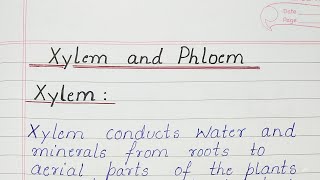 Date
Page
Xylem and Phloem
Xylem :
Xylem conducts water and
minerals from roots to
aerial parts of the plants